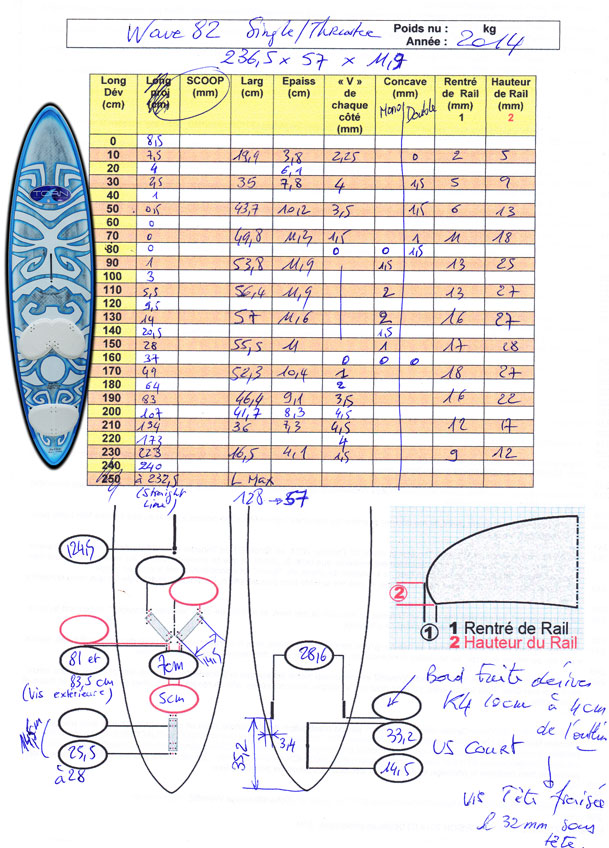 Wave 82 Single/Thruster
Poids nu : kg
Année : 2014
236,5 x 57 x 11,9
Long Dév (cm) Long proj (cm) SCOOP (mm) Larg (cm) Epaiss (cm) « V » de chaque côté (mm) Concave (mm) Mono/Double Rentré de Rail (mm) 1 Hauteur de Rail (mm) 2
0 8,5
10 7,5 19,9 3,8 2,25 0 2 5
20 4 6,1
30 2,5 35 7,8 4 1,5 5 9
40 1
50 0,5 43,7 10,2 3,5 1,5 6 13
60 0
70 0 49,8 11,2 1,5 1 11 18
80 0 0 0 1,5
90 1 53,8 11,9 1,5 13 25
100 3
110 5,5 56,4 11,9 2 13 27
120 9,5
130 14 57 11,6 2 16 27
140 20,5 1,5
150 28 55,5 11 1 17 28
160 37 0 0 0
170 49 52,3 10,4 1 18 27
180 64 2
190 83 46,4 9,1 3,5 16 22
200 107 41,7 8,3 4,5
210 134 36 7,3 4,5 12 17
220 173 4
230 223 16,5 4,1 1,5 9 12
240 240
250 à 232,5 L Max
(Straight Line) 128 → 57
TCAN
124,5
81 et
83,5 cm
(Vis extérieure)
7cm
14,5
5cm
25,5
à 28
28,6
35,2
3,4
33,2
14,5
2
1
1 Rentré de Rail
2 Hauteur du Rail
Bord Fuite dérives
K4 10cm à 4cm
de l'outline
US COURT
Vis Tête fraisée
l 32mm sous
tête.